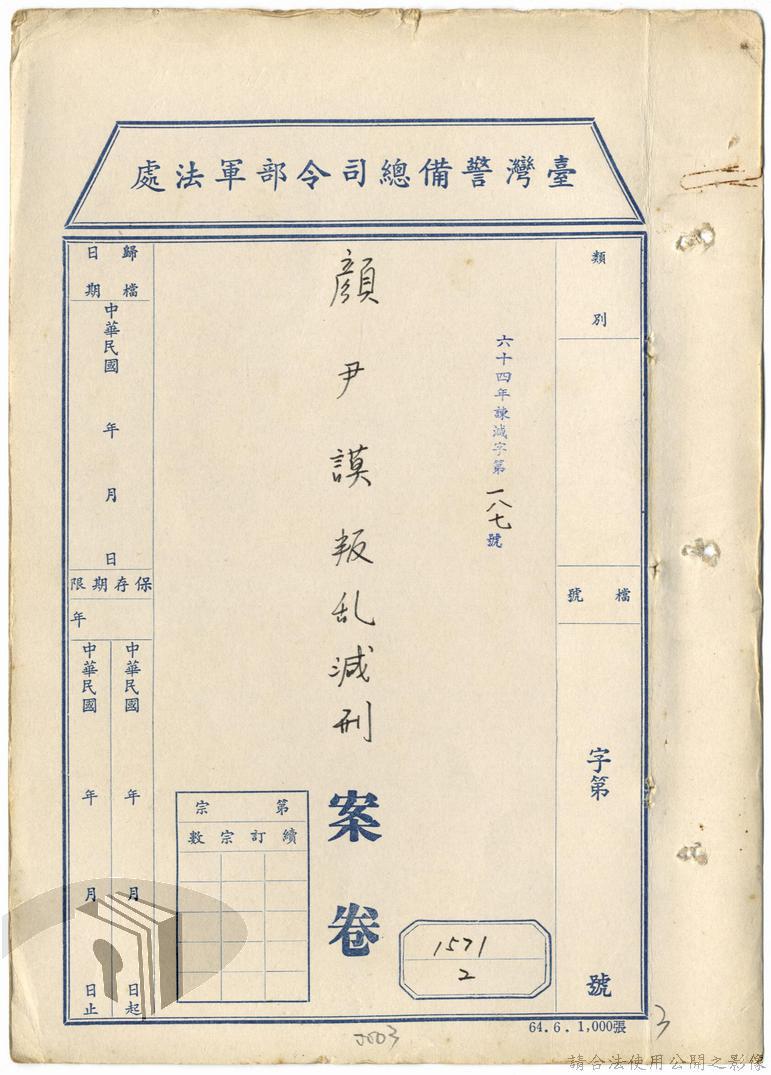 臺灣警備總司令部軍法處
類別
檔號
字第 號
六十四年諫減字第一八七號
顏尹謨叛乱減刑案卷
1571
2
第 宗
續訂宗數
歸檔日期
中華民國 年 月 日
保存期限
年
中華民國 年 月 日起
中華民國 年 月 日止
64.6.1,000張
3
請合法使用公開之影像